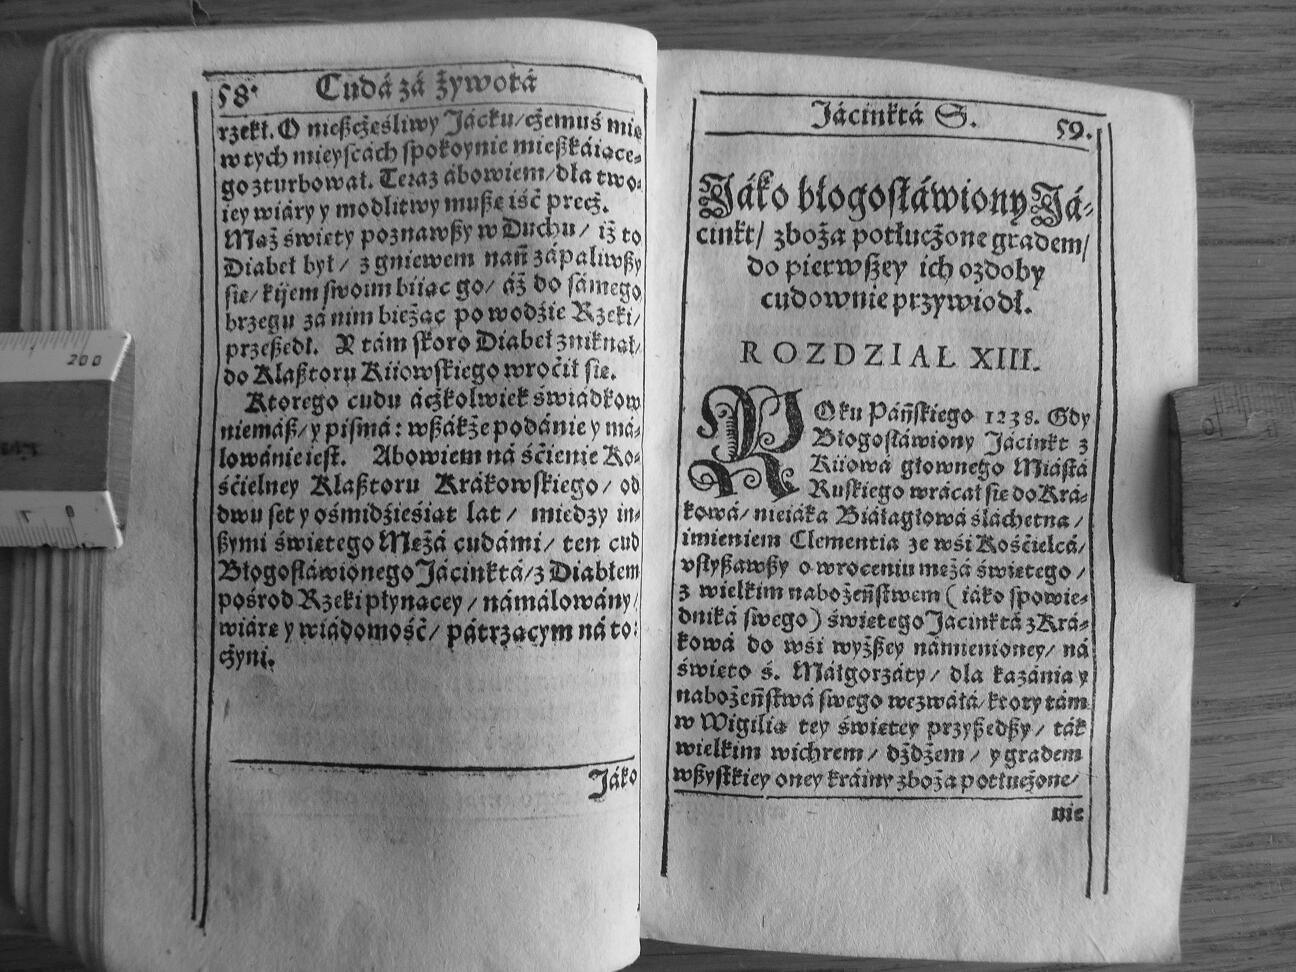 58. Cudá zá żywotá
rzekł. O nießcżeśliwy Jácku/cżemuś mię
w tych mieyscách spokoynie mießkáiące-
go zturbował. Teraz ábowiem/dla two-
iey wiáry y modlitwy muße iść precż.
Mąż święty poznawßy w Duchu/ iż to
Diabeł był/ z gniewem nań zápaliwßy
się/kijem swoim biiąc go/ áż do sámego
brzegu zá nim bieżąc po wodźie Rzeki/
przeßedł. Y tám skoro Diabeł zniknął/
do Klaßtoru Kiiowskiego wroćił się.
Ktorego cudu ácżkolwiek świádkow
niemáß/y pismá: wßákże podánie y má-
lowánie iest. Abowiem ná śćienie Ko-
śćielney Klaßtoru Krákowskiego/ od
dwu set y ośmidźieśiąt lat/ miedzy in-
ßymi świętego Mężá cudámi/ ten cud
Błogosłáwionego Jácinktá/z Diabłem
pośrod Rzeki płynącey/ námálowány/
wiárę y wiádomość/ pátrzącym ná to:
cżyni.
Jáko
Jácinktá S. 59.
Jáko błogosłáwiony Já-
cinkt/ zboża potłucżone gradem/
do pierwßey ich ozdoby
cudownie przywiodł.
ROZDZIAŁ XIII.
ROku Páńskiego 1238. Gdy
Błogosłáwiony Jácinkt z
Kiiowá głownego Miástá
Ruskiego wrácał się do Krá-
kowá/ nieiáka Białagłowá śláchetna/
imieniem Clementia ze wśi Kośćielcá/
vsłyßawßy o wroceniu mężá świętego/
z wielkim nabożeństwem (iáko spowie-
dniká swego) świętego Jácinktá z Krá-
kowá do wśi wyżßey námienioney/ ná
święto ś. Máłgorzáty/ dla kazánia y
nabożeństwá swego wezwáłá/ktory tám
w Wigilią tey świętey przyßedßy/ ták
wielkim wichrem/ dżdżem/ y gradem
wßystkiey oney kráiny zbożá potłucżone/
nie
200